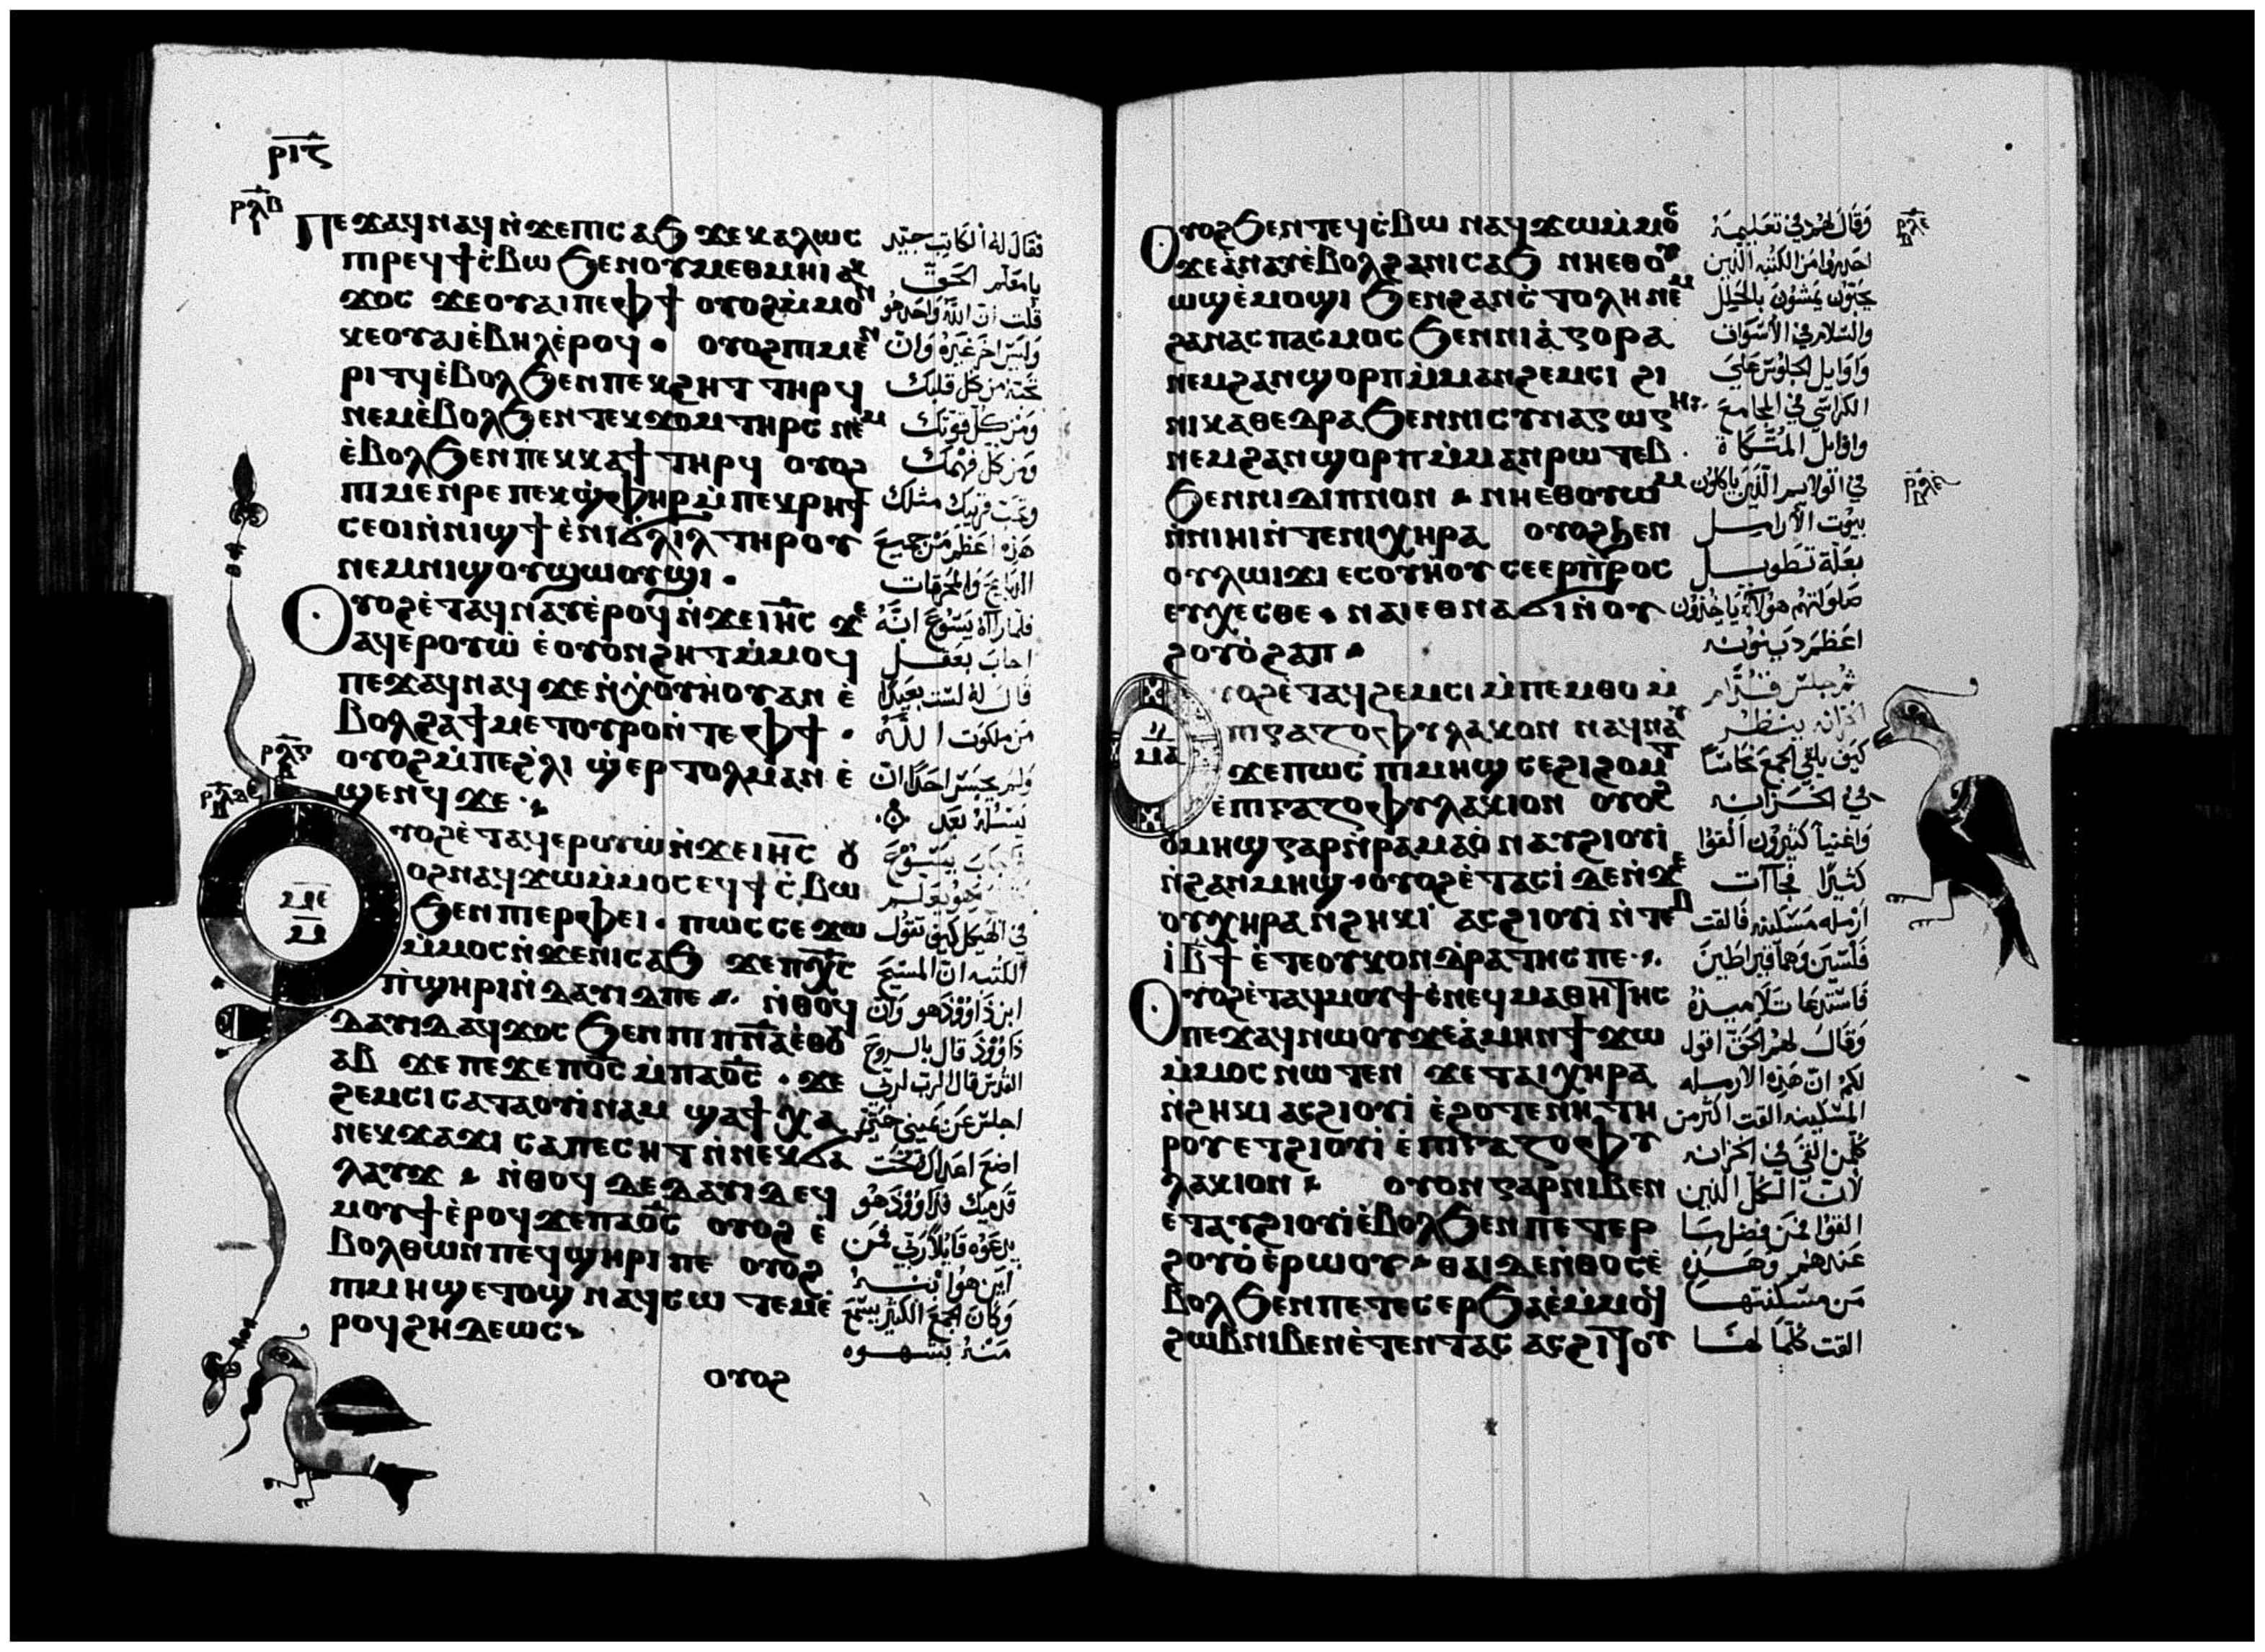 ⲣⲓⲋ
ⲣⲗⲃ
Ⲡⲉϫⲁϥⲛⲁϥⲛ̀ϫⲉⲡⲓⲥⲁϧ ϫⲉⲕⲁⲗⲱⲥ
ⲡⲓⲣⲉϥϯⲥ̀ⲃⲱ ϧⲉⲛⲟⲩⲙⲉⲑⲙⲏⲓ ⲁⲕ
ϫⲟⲥ ϫⲉⲟⲩⲁⲓⲡⲉⲫϯ ⲟⲩⲟϩⲙ̀ⲙⲟⲛ
ⲕⲉⲟⲩⲁⲓⲉ̀ⲃⲏⲗⲉ̀ⲣⲟϥ · ⲟⲩⲟϩⲡⲙⲉⲛ
ⲣⲓⲧϥⲉ̀ⲃⲟⲗϧⲉⲛⲡⲉⲕϩⲏⲧ ⲧⲏⲣϥ
ⲛⲉⲙⲉ̀ⲃⲟⲗϧⲉⲛⲧⲉⲕϫⲟⲙ ⲧⲏⲣⲥ ⲛⲉⲙ
ⲉ̀ⲃⲟⲗϧⲉⲛⲡⲉⲕⲕⲁϯ ⲧⲏⲣϥ ⲟⲩⲟϩ
ⲡⲙⲉⲛⲣⲉ ⲡⲉⲕϣⲫⲏⲣ ⲙ̀ⲡⲉⲕⲣⲏϯ
ⲥⲉⲟⲓⲛ̀ⲛⲓϣϯ ⲉ̀ⲛⲓϭⲗⲓⲗ ⲧⲏⲣⲟⲩ
ⲛⲉⲙⲛⲓϣⲟⲩϣⲱⲟⲩϣⲓ ·
Ⲟⲩⲟϩⲉ̀ⲧⲁϥⲛⲁⲩⲉ̀ⲣⲟϥ ⲛ̀ϫⲉⲓⲏⲥ ϫⲉ
ⲁϥⲉⲣⲟⲩⲱ̀ ⲉ̀ⲟⲩⲟⲛϩⲏⲧ ⲙ̀ⲙⲟϥ
ⲡⲉϫⲁϥⲛⲁϥ ϫⲉ ⲛ̀ⲭⲟⲩⲏ̀ⲟⲩ ⲁⲛ ⲉ̀
ⲃⲟⲗϩⲁϯⲙⲉⲧⲟⲩⲣⲟⲛ̀ⲧⲉⲫϯ ·
ⲟⲩⲟϩⲙ̀ⲡⲉϩ̀ⲗⲓ ϣ̀ⲉⲣⲧⲟⲗⲙⲁⲛ ⲉ̀
ϣⲉⲛϥ ϫⲉ
ⲣⲗⲅ
ⲣⲗⲇ
ⲙⲉ
ⲙⲇ
ⲟⲩⲟϩⲉ̀ⲧⲁϥⲉⲣⲟⲩⲱ̀ⲛ̀ϫⲉⲓⲏⲥ ⲟⲩ
ⲟϩⲛⲁϥϫⲱⲙ̀ⲙⲟⲥ ⲉϥϯⲥ̀ⲃⲱ
ϧⲉⲛⲡⲓⲉⲣⲫⲉⲓ · ⲡⲱⲥ ⲥⲉϫⲱ
ⲙ̀ⲙⲟⲥⲛ̀ϫⲉⲛⲓⲥⲁϧ ϫⲉⲡⲭⲥ
ⲡ̀ϣⲏⲣⲓⲛ̀ⲇⲁⲩⲓⲇⲡⲉ ⲛ̀ⲑⲟϥ
ⲇⲁⲩⲓⲇⲁϥϫⲟⲥ ϧⲉⲛⲡⲓⲡⲛⲁⲉⲑⲟⲩ
ⲁⲃ ϫⲉ ⲡⲉϫⲉⲡⲟⲥ ⲙ̀ⲡⲁⲟⲥ · ϫⲉ
ϩⲉⲙⲥⲓⲥⲁⲧⲁⲟⲩⲓⲛⲁⲙ ϣⲁϯⲭⲁ
ⲛⲉⲕϫⲁϫⲓ ⲥⲁⲡⲉⲥⲏⲧ ⲛ̀ⲛⲉⲕϭⲁ
ⲗⲁⲩϫ ⲛ̀ⲑⲟϥ ⲇⲉⲇⲁⲩⲓⲇ ⲉϥ
ⲙⲟⲩϯⲉ̀ⲣⲟϥ ϫⲉⲡⲁⲟⲥ ⲟⲩⲟϩ ⲉ̀
ⲃⲟⲗⲑⲱⲛ ⲡⲉϥϣⲏⲣⲓ ⲡⲉ ⲟⲩⲟϩ
ⲡⲓⲙⲏϣⲉⲧⲟϣ ⲛⲁϥⲥⲱⲧⲉⲙⲉ̀
ⲣⲟϥϩⲏⲇⲉⲱⲥ
ⲟⲩⲟϩ
فقال له الكاتب جيد
يا معلم الحق
قلت ان الله واحد هو
وليس اخر غيره وان
تحبه من كل قلبك
ومن كل قوتك
ومن كل فهمك
وتحب قريبك مثلك
هذه اعظم من جميع
الذبايح والمحرقات
فلما رآه يسوع انه
اجاب بعقل
قال له لست بعيدا
من ملكوت الله
ولم يجسر احدا ان
يسله بعد
يسوع
في الهيكل كيف تقول
الكتبه ان المسيح
ابن داوود هو وان
داوود قال بالروح
القدس قال الرب لربي
اجلس عن يميني حتى
اضع اعداك تحت
قدميك فداوود هو
يدعوه قايلا ربي فمن
اين هو ابنه
وكان الجمع الكثير يسمع
منه بشهوه
Ⲟⲩⲟϩϧⲉⲛⲧⲉϥⲥ̀ⲃⲱ ⲛⲁϥϫⲱⲙ̀ⲙⲟⲥ
ϫⲉⲁ̀ⲛⲁⲩⲉ̀ⲃⲟⲗϩⲁⲛⲓⲥⲁϧ ⲛⲏⲉⲑⲟⲩ
ⲱϣⲉ̀ⲙⲟϣⲓ ϧⲉⲛϩⲁⲛⲥ̀ⲧⲟⲗⲏ ⲛⲉⲙ
ϩⲁⲛⲁⲥⲡⲁⲥⲙⲟⲥ ϧⲉⲛⲛⲓⲁ̀ⲅⲟⲣⲁ
ⲛⲉⲙϩⲁⲛϣⲟⲣⲡⲙ̀ⲙⲁⲛϩⲉⲙⲥⲓ ϩⲓ
ⲛⲓⲕⲁⲑⲉⲇⲣⲁ ϧⲉⲛⲛⲓⲥⲩⲛⲁⲅⲱⲅⲏ
ⲛⲉⲙϩⲁⲛϣⲟⲣⲡⲙ̀ⲙⲁⲛⲣⲱⲧⲉⲃ ·
ϧⲉⲛⲛⲓⲇⲓⲡⲛⲟⲛ ⲛⲏⲉⲑⲟⲩⲱⲙ
ⲛ̀ⲛⲓⲏⲓⲛ̀ⲧⲉⲛⲓⲭⲏⲣⲁ ⲟⲩⲟϩϧⲉⲛ
ⲟⲩⲗⲱⲓϫⲓ ⲉⲥⲟⲩⲏⲟⲩ ⲥⲉⲉⲣⲡⲣⲟⲥ
ⲉⲩⲭⲉⲥⲑⲉ ⲛⲁⲓⲉⲑⲛⲁϭⲓⲛ̀ⲟⲩ
ϩⲟⲩⲟ̀ϩⲁⲡ
ⲙⲁ
ⲟⲩⲟϩⲉ̀ⲧⲁϥϩⲉⲙⲥⲓ ⲙ̀ⲡⲉⲙⲑⲟ ⲙ̀
ⲡⲓⲅⲁⲍⲟⲫⲩⲗⲁⲕⲟⲛ ⲛⲁϥⲛⲁⲩ
ϫⲉⲡⲱⲥ ⲡⲓⲙⲏϣ ⲥⲉϩⲓϩⲟⲙⲧ
ⲉ̀ⲡⲓⲅⲁⲍⲟⲫⲩⲗⲁⲕⲓⲟⲛ ⲟⲩⲟϩ
ⲟⲩⲙⲏϣ ⲅⲁⲣⲛ̀ⲣⲁⲙⲁⲟ̀ ⲛⲁⲩϩⲓⲟⲩⲓ̀
ⲛ̀ϩⲁⲛⲙⲏϣ · ⲟⲩⲟϩⲉ̀ⲧⲁⲥⲓ̀ ⲇⲉⲛ̀ϫⲉ
ⲟⲩⲭⲏⲣⲁ ⲛ̀ϩⲏⲕⲓ ⲁⲥϩⲓⲟⲩⲓ̀ ⲛ̀ⲧⲉ
ⲃ̀ϯ ⲉ̀ⲧⲉⲟⲩⲕⲟⲛⲇⲣⲁⲧⲏⲥ ⲡⲉ
Ⲟⲩⲟϩⲉ̀ⲧⲁϥⲙⲟⲩϯⲉ̀ⲛⲉϥⲙⲁⲑⲏⲧⲏⲥ
ⲡⲉϫⲁϥⲛⲱⲟⲩ ϫⲉⲁ̀ⲙⲏⲛ ϯϫⲱ
ⲙ̀ⲙⲟⲥ ⲛⲱⲧⲉⲛ ϫⲉ ⲧⲁⲓⲭⲏⲣⲁ
ⲛ̀ϩⲏⲕⲓ ⲁⲥϩⲓⲟⲩⲓ̀ ⲉ̀ϩⲟⲧⲉⲛⲏ ⲧⲏ
ⲣⲟⲩ ⲉⲧϩⲓⲟⲩⲓ̀ ⲉ̀ⲡⲓⲅⲁⲍⲟⲫⲩ
ⲗⲁⲕⲓⲟⲛ ⲟⲩⲟⲛ ⲅⲁⲣⲛⲓⲃⲉⲛ
ⲉ̀ⲧⲁⲩϩⲓⲟⲩⲓ̀ⲉ̀ⲃⲟⲗϧⲉⲛ ⲡⲉⲧⲉⲣ
ϩⲟⲩⲟ̀ ⲉ̀ⲣⲱⲟⲩ ⲑⲁⲓ ⲇⲉⲛ̀ⲑⲟⲥ ⲉ̀
ⲃⲟⲗϧⲉⲛⲡⲉⲧⲉⲥⲉⲣϧⲁⲉ̀ⲙ̀ⲙⲟϥ
ϩⲱⲃⲛⲓⲃⲉⲛⲉ̀ⲧⲉⲛⲧⲁⲥ ⲁⲥϩⲓⲧⲟⲩ
وقال لهم في تعليمه
احذروا من الكتبه الذين
يحبون يمشون بالحلل
والسلام في الاسواق
واوايل الجلوس على
الكراسي في المجامع
واوايل المتكاة
في الولايم الذين ياكلون
بيوت الارامل
بعلة تطويل
صلواتهم هولاء ياخذون
اعظم دينونه
ثم جلس قدام
ينظر
كيف يلقي الجمع نحاسا
في الخزانه
واغنيا كثيرون القوا
كثيرا فجآت
ارمله مسكينه فالقت
فلسين
فاستدعا تلاميذه
وقال لهم الحق اقول
لكم ان هذه الارمله
المسكينه القت اكثر من
كلمن القي في الخزانه
لان الكل الذين
القوا فمن فضل ما
عندهم وهذه
من مسكنتها
القت كلما لها
ⲣⲗⲉ